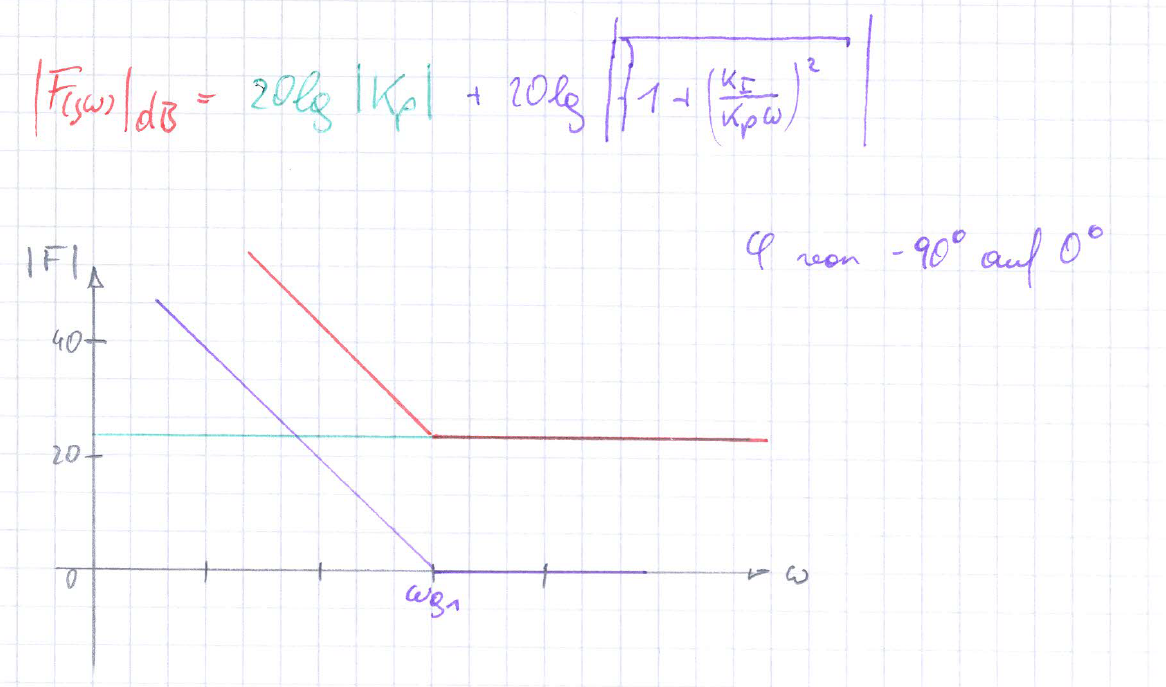 |F(jω)|dB = 20lg |Kp| + 20lg |√1 + (KI/Kpω)²|
φ von -90° auf 0°
|F|
40
20
0
ωg1
ω